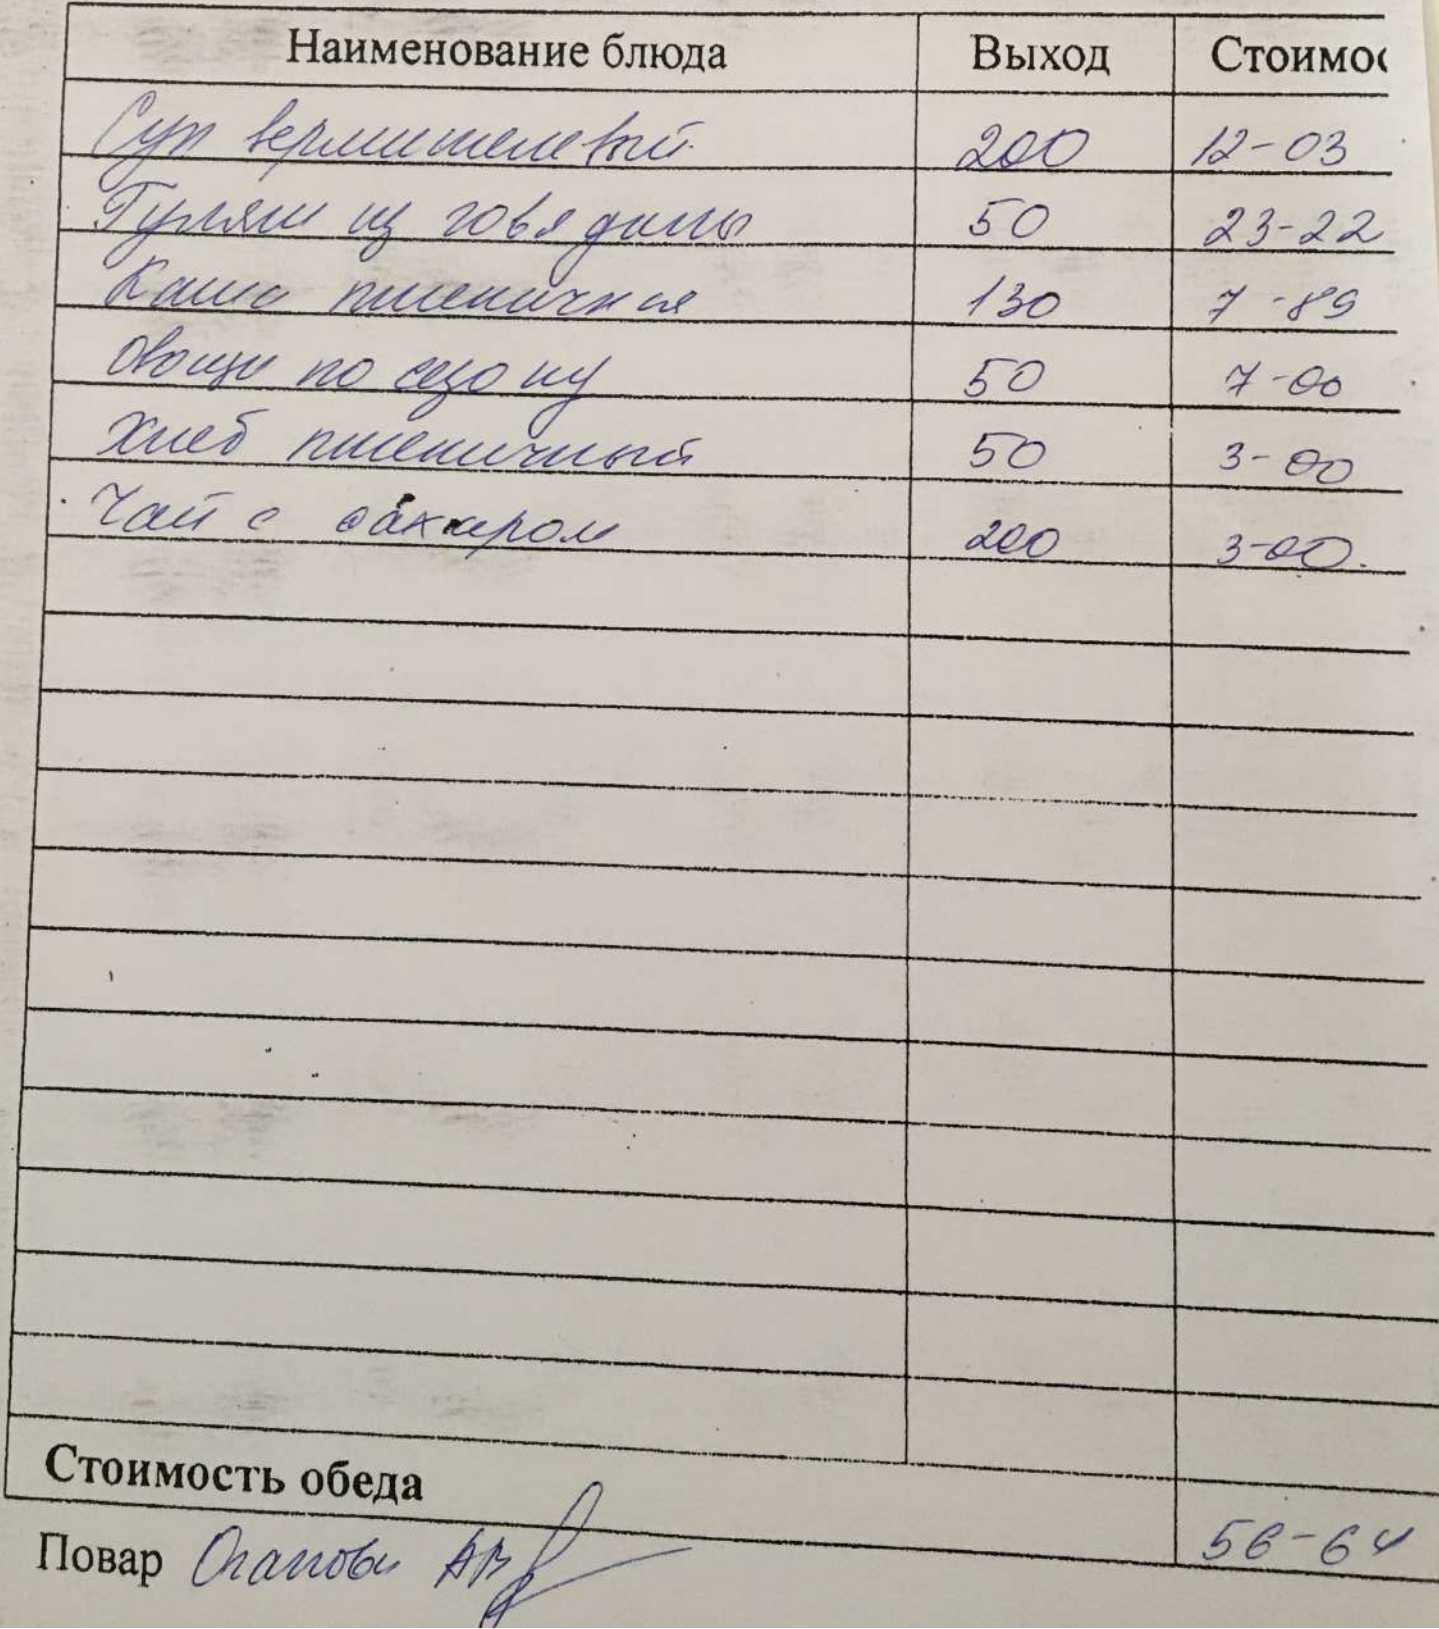 Наименование блюда Выход Стоимос
Суп вермишелевый 200 12-03
Гуляш из говядины 50 23-22
Каша пшеничная 130 7-89
Овощи по сезону 50 7-00
Хлеб пшеничный 50 3-00
Чай с сахаром 200 3-00.
Стоимость обеда 56-64
Повар